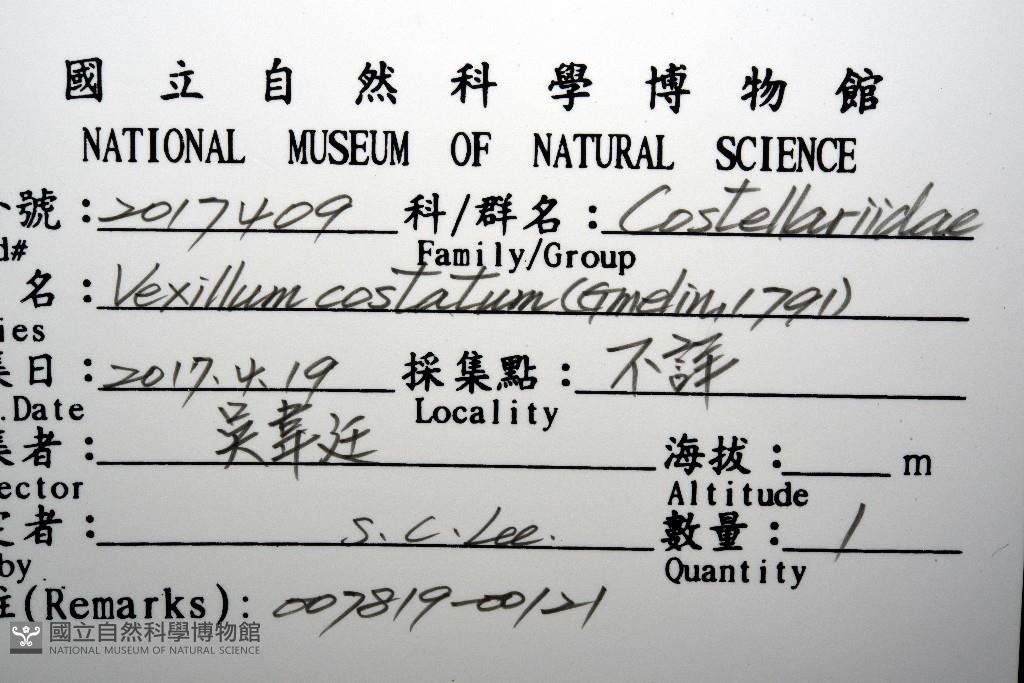 國立自然科學博物館
NATIONAL MUSEUM OF NATURAL SCIENCE
號：2017409 科/群名：Costellariidae
d# Family/Group
名：Vexillum costatum (Gmelin, 1791)
ies
集日：2017.4.19 採集點：不詳
.Date Locality
集者：吳葦廷 海拔：____ m
ector Altitude
定者：S. C. Lee. 數量：1
by Quantity
註(Remarks): 007819-00121
國立自然科學博物館
NATIONAL MUSEUM OF NATURAL SCIENCE